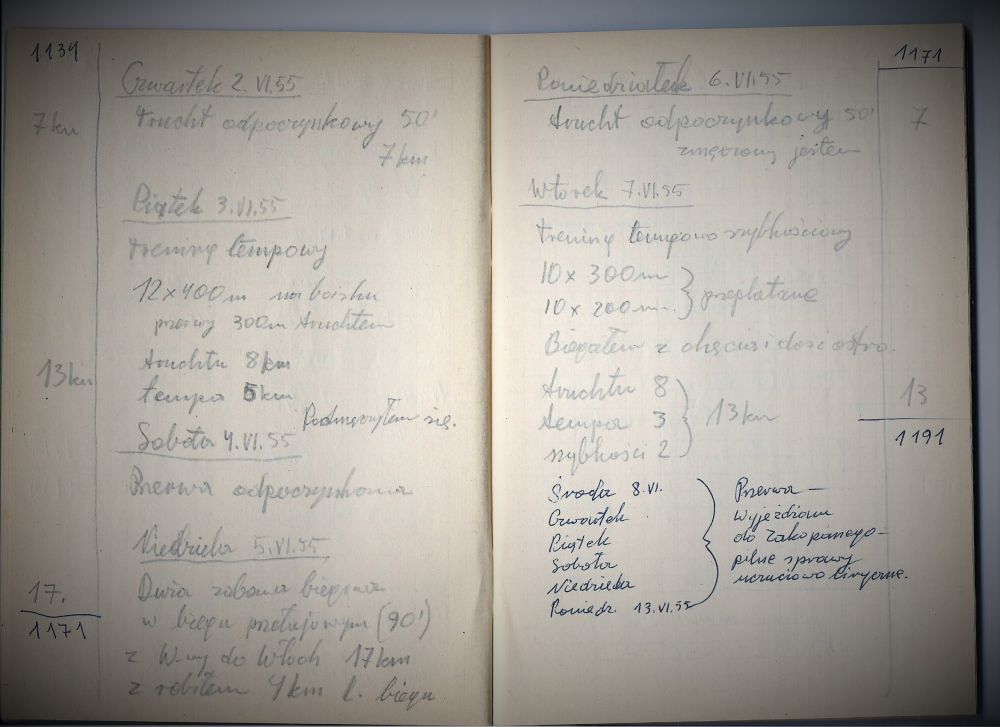 1134
Czwartek 2.VI.55
7 km
trucht odpoczynkowy 50'
7 km
Piątek 3.VI.55
trening tempowy
12 x 400 m na boisku
przerwy 300m truchtem
truchtu 8 km
13 km
tempa 5 km
Podmęczyłem się.
Sobota 4.VI.55
Przerwa odpoczynkowa
Niedziela 5.VI.55
17.
Duża zabawa biegowa
1171
w biegu przełajowym (90')
z W-wy do Włoch 17 km
z robiłem 4 km l. biegu
1171
Poniedziałek 6.VI.55
trucht odpoczynkowy 50'
7
zmęczony jestem
Wtorek 7.VI.55
trening tempowo szybkościowy
10 x 300 m
10 x 200 m
przeplatane
Biegałem z chęcią i dość ostro.
truchtu 8
13
tempa 3
13 km
1191
szybkości 2
Środa 8.VI.
Czwartek
Piątek
Sobota
Niedziela
Poniedz. 13.VI.55
Przerwa —
Wyjeżdżam
do Zakopanego —
pilne sprawy
uczuciowo liryczne.